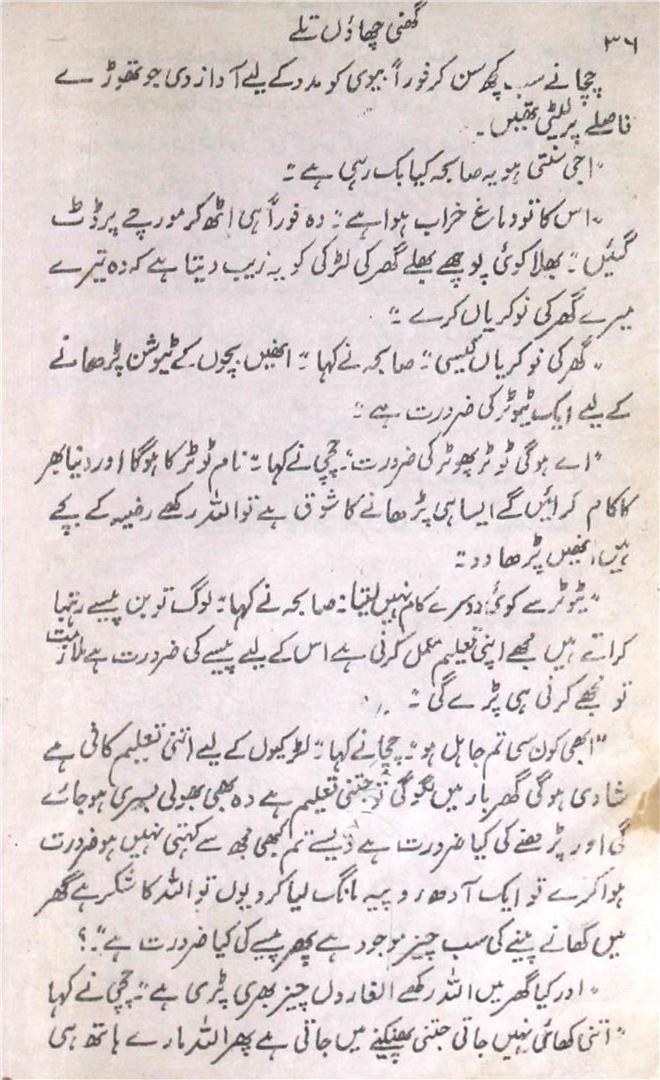 گھنی چھاؤں تلے
۳۶
چچا نے سب کچھ سن کر فوراً بیوی کو مدد کے لیے آواز دی جو تھوڑے
فاصلے پر لیٹی تھیں۔
"اجی سنتی ہو یہ صابحہ کیا بک رہی ہے"۔
"اس کا تو دماغ خراب ہوا ہے"۔ وہ فوراً ہی اٹھ کر مورچے پر ڈٹ
گئیں"۔ بھلا کوئی پوچھے بھلے گھر کی لڑکی کو یہ زیب دیتا ہے کہ وہ تیرے
میرے گھر کی نوکریاں کرے"۔
"گھر کی نوکریاں کیسی"۔ صابحہ نے کہا"۔ انھیں بچوں کے ٹیوشن پڑھانے
کے لیے ایک ٹیوٹر کی ضرورت ہے"۔
"اے ہوگی ٹوٹر پھوٹر کی ضرورت"۔ چچی نے کہا"۔ نام ٹوٹر کا ہوگا اور دنیا بھر
کا کام کرائیں گے ایسا ہی پڑھانے کا شوق ہے تو اللہ رکھے رضیہ کے بچے
ہیں، انھیں پڑھا دو"۔
"ٹیوٹر سے کوئی دوسرے کام نہیں لیتا"۔ صابحہ نے کہا"۔ لوگ تو بن پیسے
کراتے ہیں مجھے اپنی تعلیم مکمل کرنی ہے اس کے لیے پیسے کی ضرورت ہے ملازمت
تو مجھے کرنی ہی پڑے گی"۔
"ابھی کون سی تم جاہل ہو"۔ چچا نے کہا"۔ لڑکیوں کے لیے اتنی تعلیم کافی ہے
شادی ہوگی گھر بار میں لگو گی تو جتنی تعلیم ہے وہ بھی بھولی بسری ہو جائے
گی اور پڑھنے کی کیا ضرورت ہے ویسے تم کبھی مجھ سے کہتی نہیں ہو ضرورت
ہوا کرے تو ایک آدھ روپیہ مانگ لیا کرو یوں تو اللہ کا شکر ہے گھر
میں کھانے پینے کی سب چیز موجود ہے پھر پیسے کی کیا ضرورت ہے"۔؟
"اور کیا گھر میں اللہ رکھے الغاروں چیز بھری پڑی ہے"۔ چچی نے کہا
"اتنی کھائی نہیں جاتی جتنی پھینکنے میں جاتی ہے پھر اللہ مارے ہاتھ ہی